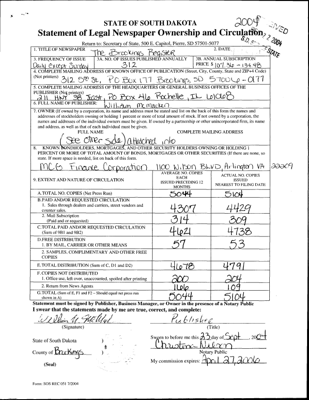 STATE OF SOUTH DAKOTA
2004
Statement of Legal Newspaper Ownership and Circulation
Return to: Secretary of State, 500 E. Capitol, Pierre, SD 57501-5077
1. TITLE OF NEWSPAPER
2. DATE
The Brookings Register
3. FREQUENCY OF ISSUE
Daily Except Sunday
3A. NO. OF ISSUES PUBLISHED ANNUALLY
312
3B. ANNUAL SUBSCRIPTION
PRICE $
4. COMPLETE MAILING ADDRESS OF KNOWN OFFICE OF PUBLICATION (Street, City, County, State and ZIP+4 Code)
(Not printers)
312 5th St, PO Box 177 Brookings, SD 57006-0177
5. COMPLETE MAILING ADDRESS OF THE HEADQUARTERS OR GENERAL BUSINESS OFFICES OF THE
PUBLISHER (Not printers)
PO Box Rochelle, IL
6. FULL NAME OF PUBLISHER:
William McMacken
7. OWNER (If owned by a corporation, its name and address must be stated and also on the back of this form the names and
addresses of stockholders owning or holding 1 percent or more of total amount of stock. If not owned by a corporation, the
names and addresses of the individual owners must be given. If owned by a partnership or other unincorporated firm, its name
and address, as well as that of each individual must be given.
FULL NAME
COMPLETE MAILING ADDRESS
(See other side) attached info
8. KNOWN BONDHOLDERS, MORTGAGEES, AND OTHER SECURITY HOLDERS OWNING OR HOLDING 1
PERCENT OR MORE OF TOTAL AMOUNT OF BONDS, MORTGAGES OR OTHER SECURITIES (If there are none, so
state. If more space is needed, list on back of this form.
MCG Finance Corporation 1100 Wilson BLVD, Arlington VA 22209
9. EXTENT AND NATURE OF CIRCULATION
AVERAGE NO. COPIES
EACH
ISSUED PRECEDING 12
MONTHS
ACTUAL NO. COPIES
ISSUED
NEAREST TO FILING DATE
A. TOTAL NO. COPIES (Net Press Run)
5044
5104
B. PAID AND/OR REQUESTED CIRCULATION
1. Sales through dealers and carriers, street vendors and
counter sales.
4307
4429
2. Mail Subscription
(Paid and or requested)
314
309
C. TOTAL PAID AND/OR REQUESTED CIRCULATION
(Sum of 9B1 and 9B2)
4621
4738
D. FREE DISTRIBUTION
1. BY MAIL, CARRIER OR OTHER MEANS
57
53
2. SAMPLES, COMPLIMENTARY AND OTHER FREE
COPIES
E. TOTAL DISTRIBUTION (Sum of C, D1 and D2)
4678
4791
F. COPIES NOT DISTRIBUTED
1. Office use, left over, unaccounted, spoiled after printing
200
204
2. Return from News Agents
166
109
G. TOTAL (Sum of E, F1 and F2 - Should equal net press run
shown in A)
5044
5104
Statement must be signed by Publisher, Business Manager, or Owner in the presence of a Notary Public
I swear that the statements made by me are true, correct, and complete:
Publisher
(Signature)
(Title)
State of South Dakota
Sworn to before me this 23 day of Sept 2004
County of Brookings
Notary Public
(Seal)
My commission expires: April 27, 2006
Form: SOS REC 051 7/2004